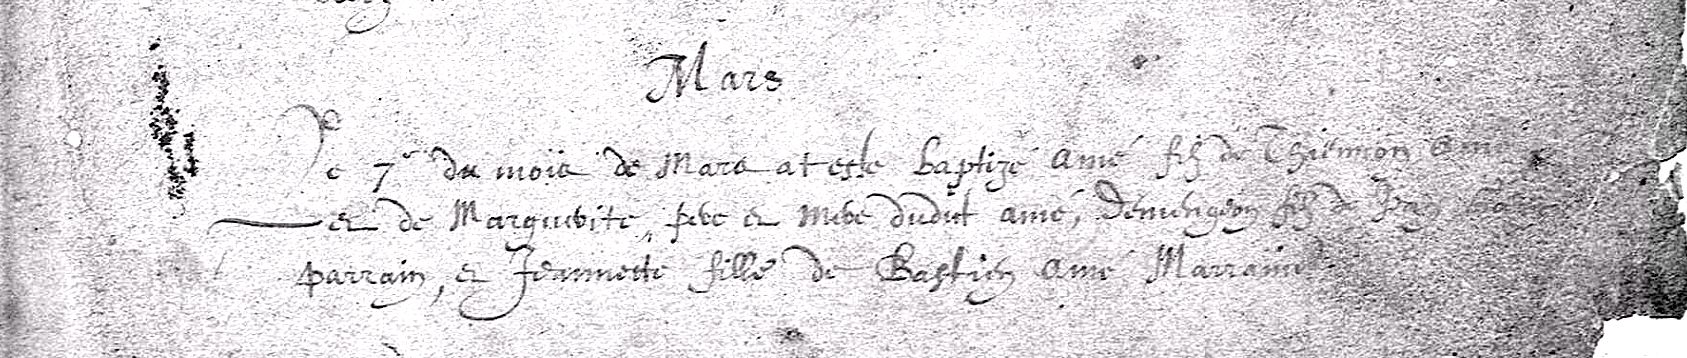 Mars
Le 7e du mois de Mars at este baptizé Amé filz de Thiennon Amé
et de Marguerite, pere et mere dudit Amé, Demengeon filz de Jean
parrain, et Jeannette fille de Bastien Amé Marraine